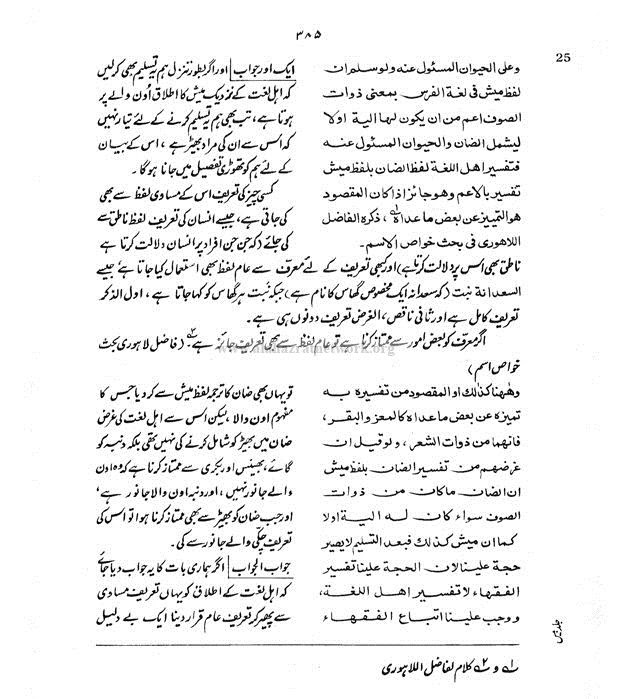 ۳۸۵
25
وعلى الحیوان المسئول عنه ولوسلم ان
لفظ میش فی لغة الفرس بمعنی ذوات
الصوف اعم من ان یکون لها الیة اولا
لیشمل الضان والحیوان المسئول عنه
فتفسیر اهل اللغة لفظ الضان بلفظ میش
تفسیر بالاعم وهو جائز اذا کان المقصود
هو التمییز عن بعض ما عداه۱، ذکره الفاضل
اللاهوری فی بحث خواص الاسم۔
ایک اور جواب اور اگر بطور تنزل ہم یہ تسلیم بھی کرلیں
کہ اہل لغت کے نزدیک میش کا اطلاق اُون والے پر
ہوتا ہے، تب بھی ہم یہ تسلیم کرنے کے لئے تیار نہیں
کہ اُس سے ان کی مراد بھیڑ ہے، اس کے بیان
کے لئے ہم کو تھوڑی تفصیل میں جانا ہوگا۔
کسی چیز کی تعریف اس کے مساوی لفظ سے بھی
کی جاتی ہے، جیسے انسان کی تعریف لفظ ناطق سے
کی جائے (کہ جن جن افراد پر انسان دلالت کرتا ہے
ناطق بھی اُس پر دلالت کرتا ہے) اور کبھی تعریف کے لئے معرف سے عام لفظ بھی استعمال کیا جاتا ہے، جیسے
السعدانة نبت (کہ سعدانہ ایک مخصوص گھاس کا نام ہے) جبکہ نبت ہر گھاس کو کہا جاتا ہے، اول الذکر
تعریف کامل ہے اور ثانی ناقص، الغرض تعریف دونوں ہی ہے۔
اگر معرف کو بعض امور سے ممتاز کرنا ہے تو عام لفظ سے بھی تعریف جائز ہے۲۔ (فاضل لاہوری بحث
خواص اسم)
وههنا کذلك اذ المقصود من تفسیره به
تمیزه عن بعض ما عداه کالمعز والبقر،
فانهما من ذوات الشعر، ولو قیل ان
غرضهم من تفسیر الضان بلفظ میش
ان الضان ما کان من ذوات
الصوف سواء کان له الیة اولا
کما ان میش کذلك فبعد التسلیم لا یصیر
حجة علینا لان الحجة علینا تفسیر
الفقهاء لا تفسیر اهل اللغة،
ووجب علینا اتباع الفقهاء
تو یہاں بھی ضان کا ترجمہ لفظ میش سے کر دیا جس کا
مفہوم اون والا، لیکن اس سے اہل لغت کی غرض
ضان میں بھیڑ کو شامل کرنے کی نہیں تھی بلکہ دنبہ کو
گائے، بھینس اور بکری سے ممتاز کرنا ہے کہ وہ اون
والے جانور نہیں، اور دنبہ اون والا جانور ہے،
اور جب ضان کو بھیڑ سے بھی ممتاز کرنا ہوا تو اس کی
تعریف چکی والے جانور سے کی۔
جواب الجواب اگر ہماری بات کا یہ جواب دیا جائے
کہ اہل لغت کے اطلاق کو یہاں تعریف مساوی
سے پھیر کر تعریف عام قرار دینا ایک بے دلیل
جلد بستم
۱ و ۲ کلام لفاضل اللاهوری